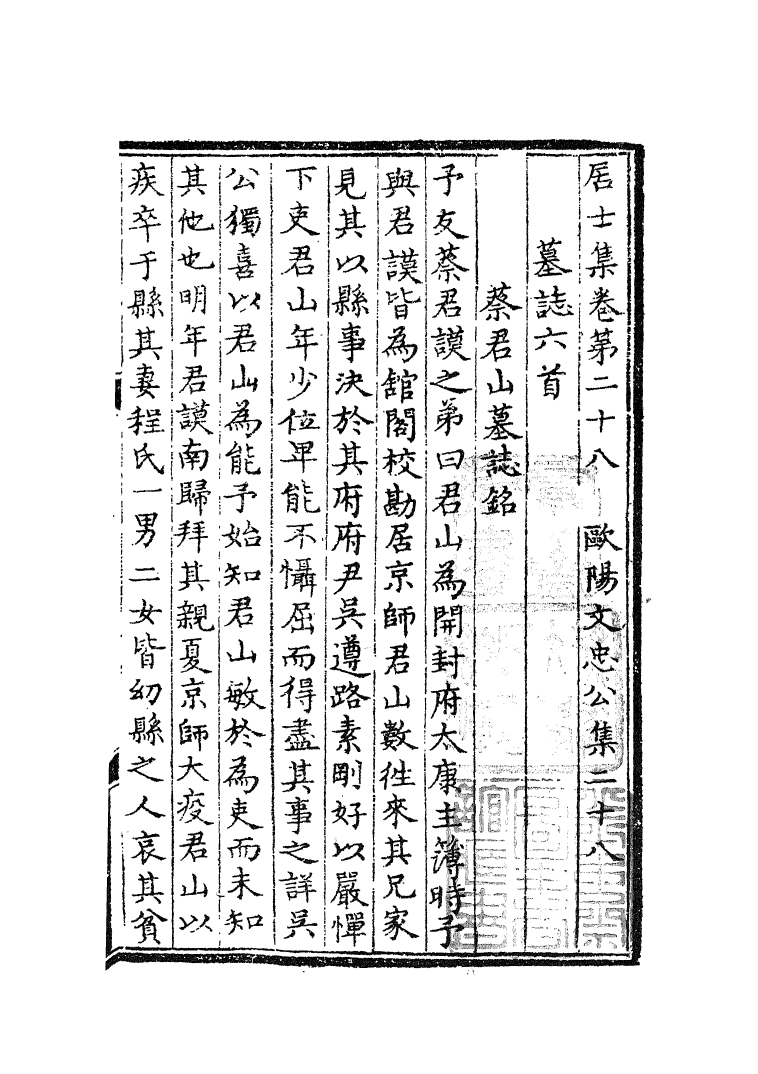 居士集卷第二十八 歐陽文忠公集二十八
墓誌六首
蔡君山墓誌銘
予友蔡君謨之弟曰君山為開封府太康主簿時予
與君謨皆為舘閣校勘居京師君山數徃來其兄家
見其以縣事決於其府府尹吳遵路素剛好以嚴憚
下吏君山年少位卑能不懾屈而得盡其事之詳吳
公獨喜以君山為能予始知君山敏於為吏而未知
其他也明年君謨南歸拜其親夏京師大疫君山以
疾卒于縣其妻程氏一男二女皆幼縣之人哀其貧